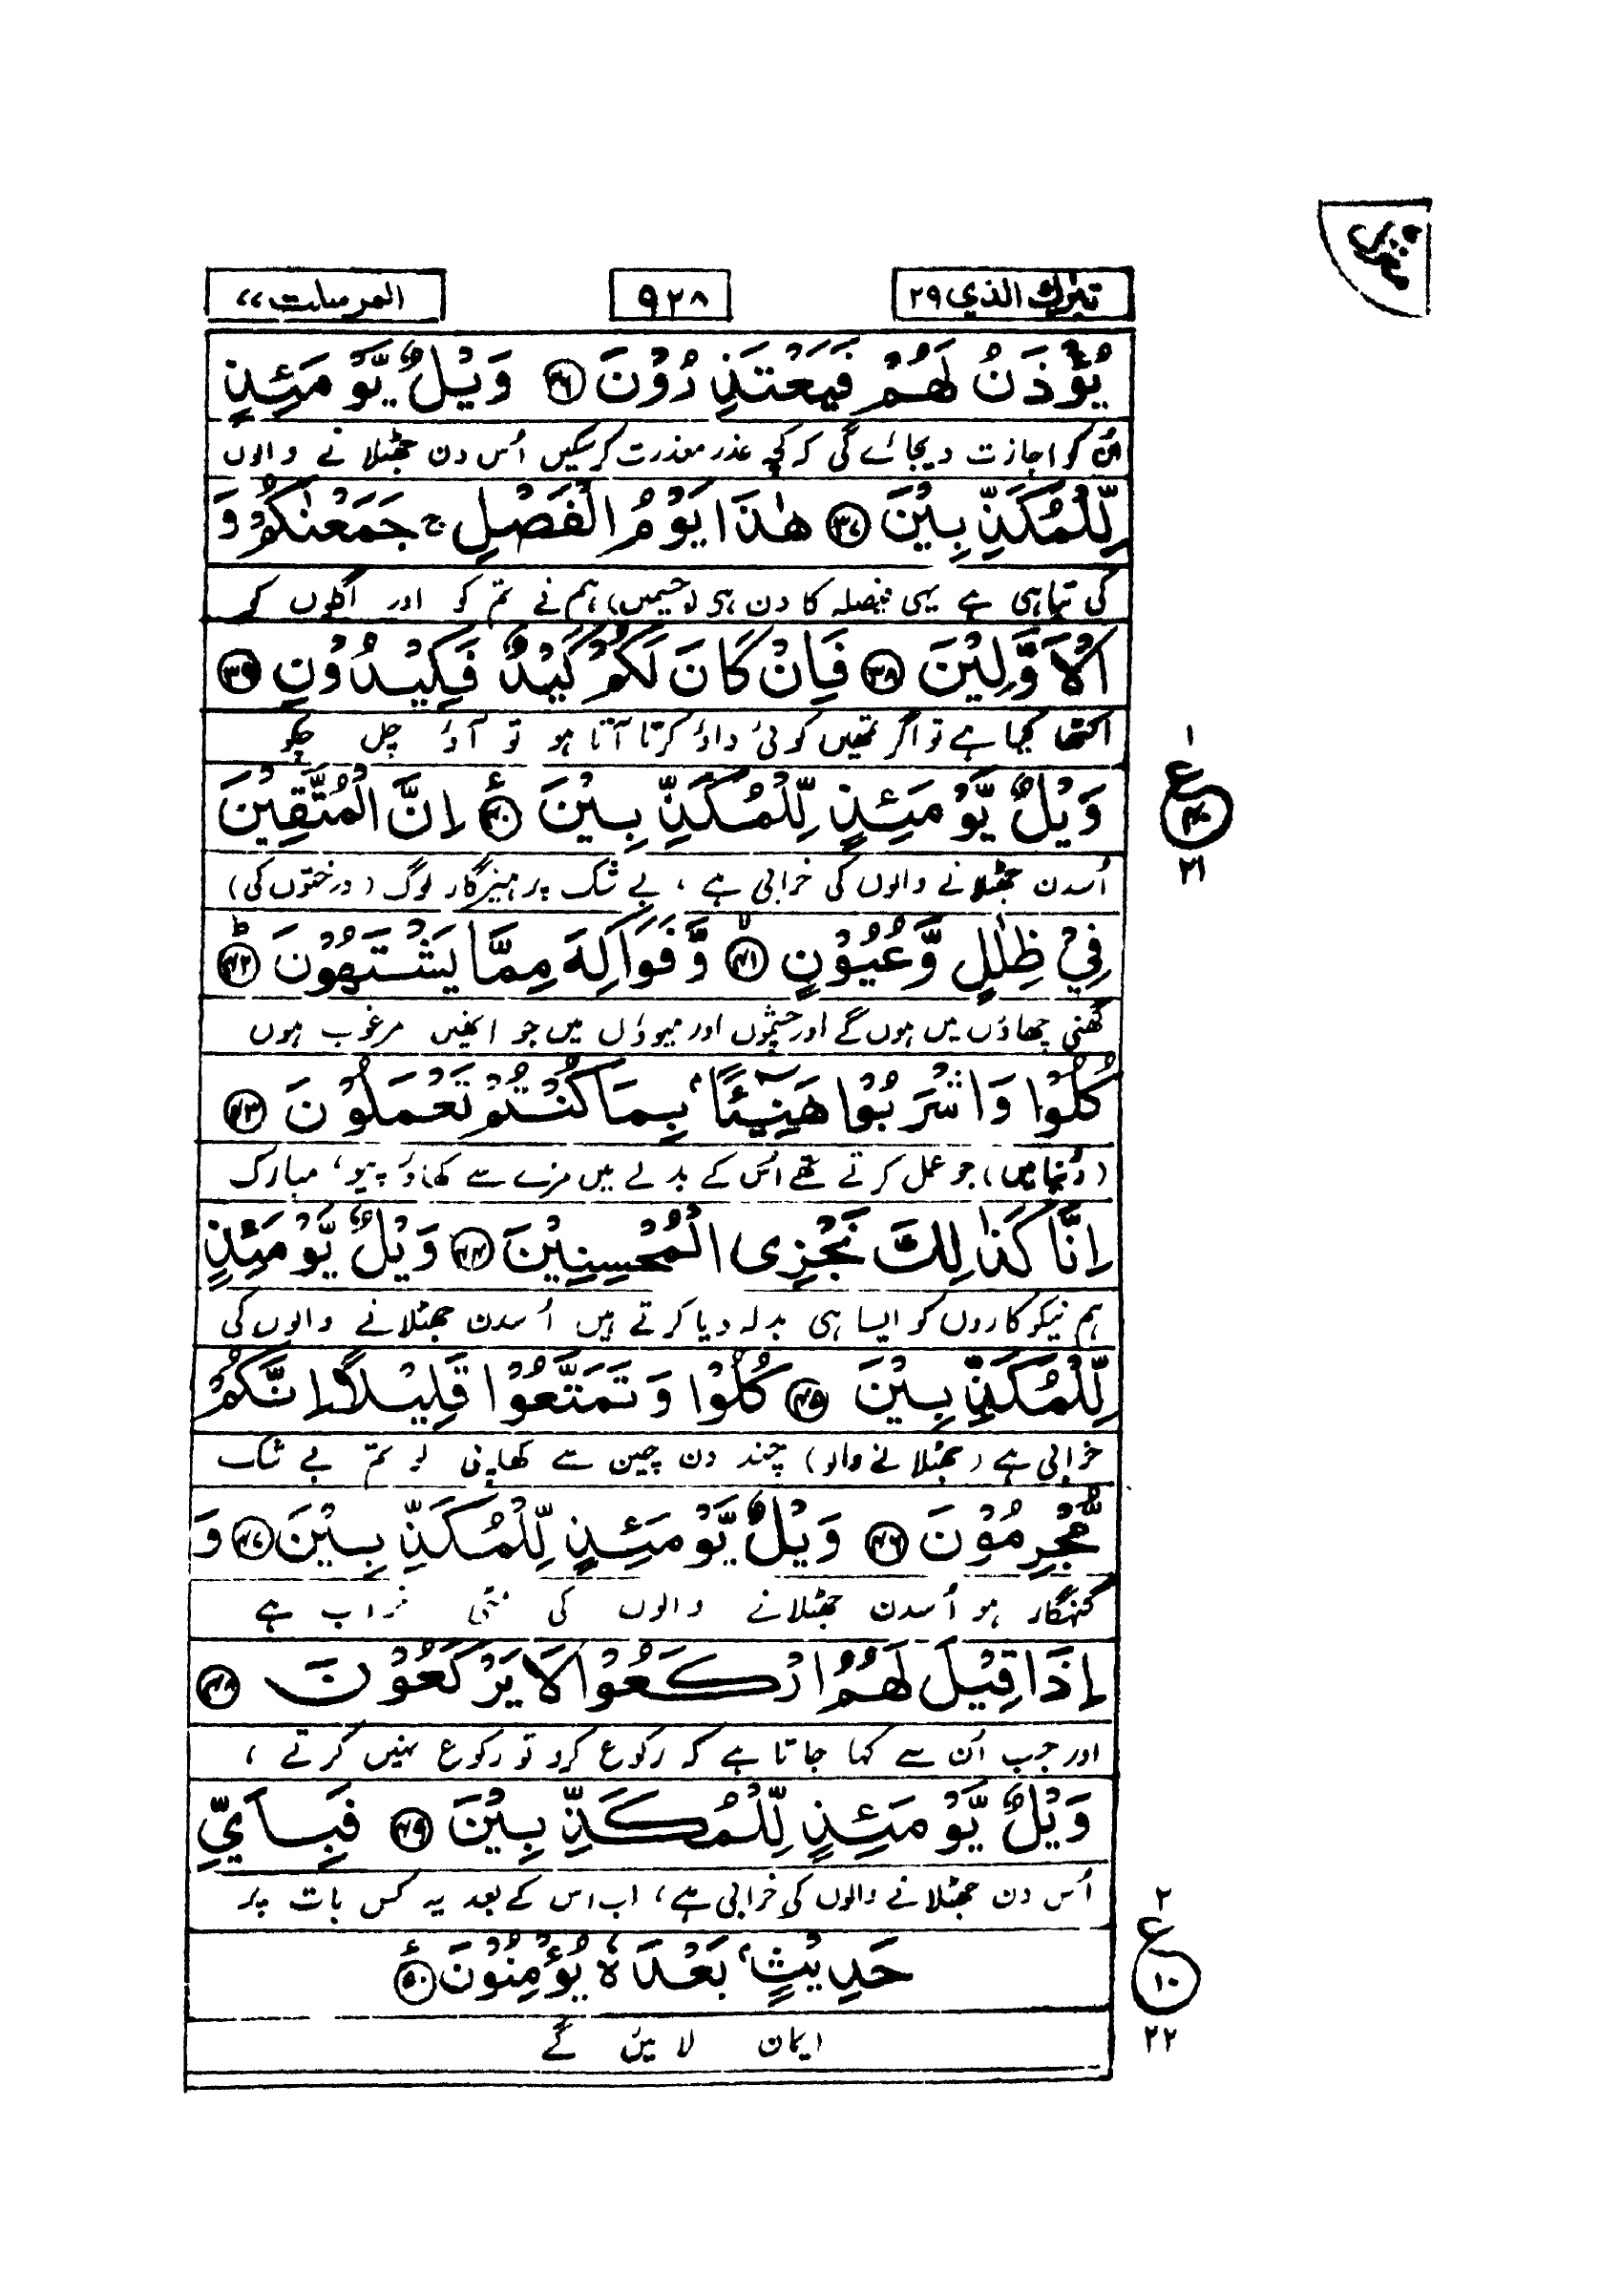 تبرك الذي ٢٩
٩٢٨
المرسلت ٧٧
يُؤْذَنُ لَهُمْ فَيَعْتَذِرُوْنَ ﴿٣٦﴾ وَيْلٌ يَّوْمَئِذٍ
اُن کو اجازت دیجائے گی کہ کچھ عذر معذرت کرسکیں اُس دن جھٹلا نے والوں
لِّلْمُكَذِّبِيْنَ ﴿٣٧﴾ هٰذَا يَوْمُ الْفَصْلِ ۚ جَمَعْنٰكُمْ وَ
کی تباہی ہے یہی فیصلہ کا دن ہی (جسمیں) ہم نے تم کو اور اگلوں کو
الْاَوَّلِيْنَ ﴿٣٨﴾ فَاِنْ كَانَ لَكُمْ كَيْدٌ فَكِيْدُوْنِ ﴿٣٩﴾
اکٹھا کیا ہے تو اگر تمھیں کوئی داؤ کرتا آتا ہو تو آؤ چل چکو
وَيْلٌ يَّوْمَئِذٍ لِّلْمُكَذِّبِيْنَ ﴿٤٠﴾ اِنَّ الْمُتَّقِيْنَ
اُسدن جھٹلا نے والوں کی خرابی ہے ، بے شک پرہیزگار لوگ (درختوں کی)
فِيْ ظِلٰلٍ وَّعُيُوْنٍ ﴿٤١﴾ وَّفَوَاكِهَ مِمَّا يَشْتَهُوْنَ ﴿٤٢﴾
گھنی چھاؤں میں ہوں گے اور چشموں اور میووں میں جو انھیں مرغوب ہوں
كُلُوْا وَاشْرَبُوْا هَنِيْٓئًۢا بِمَا كُنْتُمْ تَعْمَلُوْنَ ﴿٤٣﴾
(دُنیا میں) جو عمل کرتے تھے اُس کے بدلے میں مزے سے کھاؤ پیو ، مبارک
اِنَّا كَذٰلِكَ نَجْزِى الْمُحْسِنِيْنَ ﴿٤٤﴾ وَيْلٌ يَّوْمَئِذٍ
ہم نیکو کاروں کو ایسا ہی بدلہ دیا کرتے ہیں اُسدن جھٹلانے والوں کی
لِّلْمُكَذِّبِيْنَ ﴿٤٥﴾ كُلُوْا وَتَمَتَّعُوْا قَلِيْلًا اِنَّكُمْ
خرابی ہے (جھٹلا نے والو) چند دن چین سے کھا پی لو تم بے شک
مُّجْرِمُوْنَ ﴿٤٦﴾ وَيْلٌ يَّوْمَئِذٍ لِّلْمُكَذِّبِيْنَ ﴿٤٧﴾ وَ
گنہگار ہو اُسدن جھٹلانے والوں کی خراب ہے
اِذَا قِيْلَ لَهُمُ ارْكَعُوْا لَا يَرْكَعُوْنَ ﴿٤٨﴾
اور جب اُن سے کہا جاتا ہے کہ رکوع کرو تو رکوع نہیں کرتے ،
وَيْلٌ يَّوْمَئِذٍ لِّلْمُكَذِّبِيْنَ ﴿٤٩﴾ فَبِاَيِّ
اُس دن جھٹلانے والوں کی خرابی ہے ، اب اس کے بعد یہ کس بات پر
حَدِيْثٍۭ بَعْدَهٗ يُؤْمِنُوْنَ ﴿٥٠﴾
ایمان لائیں گے
١
ع
٤٠
٢١
٢
ع
١٠
٢٢